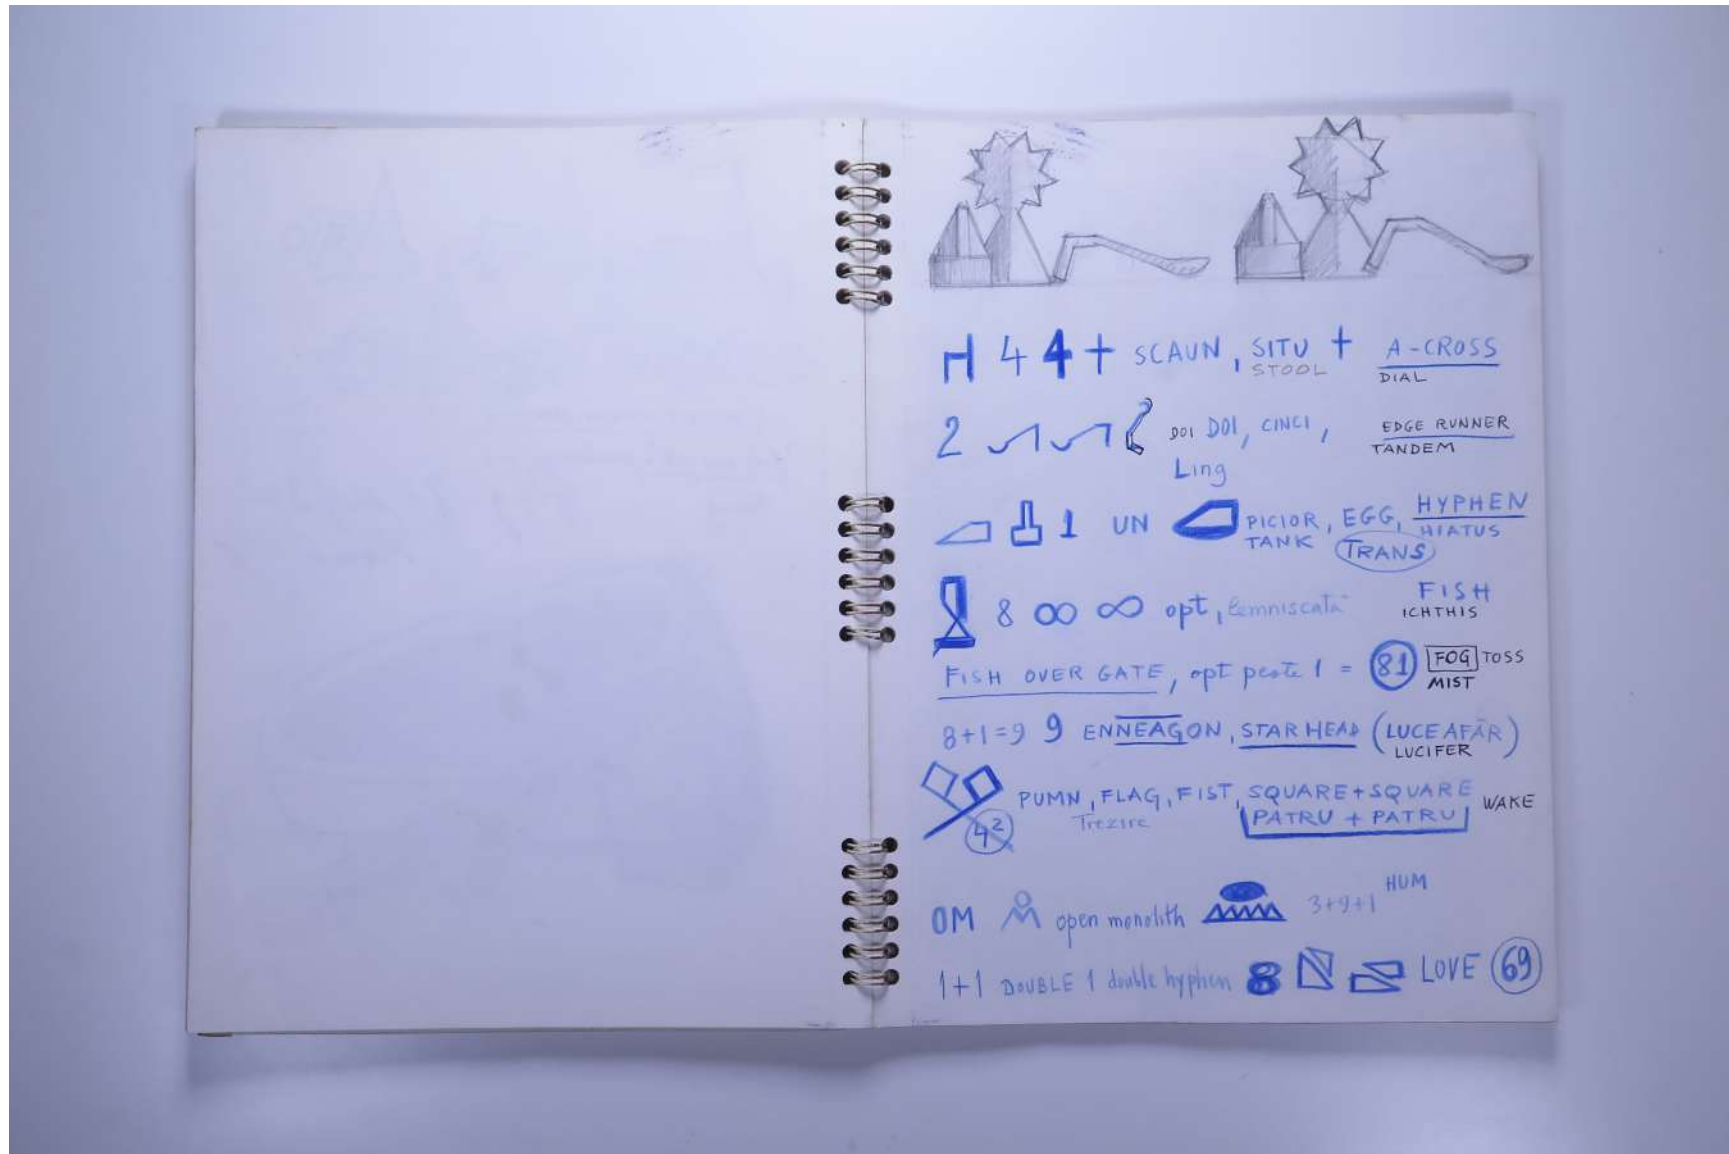 4 4 + SCAUN, SITU + A-CROSS
STOOL DIAL
2 DOI DOI, CINCI, EDGE RUNNER
TANDEM
Ling
1 UN PICIOR, EGG, HYPHEN
TANK TRANS HIATUS
8 ∞ ∞ opt, lemniscată FISH
ICHTHIS
FISH OVER GATE, opt peste 1 = 81 FOG TOSS
MIST
8+1=9 9 ENNEAGON, STAR HEAD (LUCEAFĂR)
LUCIFER
PUMN, FLAG, FIST, SQUARE+SQUARE WAKE
4² Trezire PATRU + PATRU
OM open monolith 3+9+1 HUM
1+1 DOUBLE 1 double hyphen 8 LOVE 69